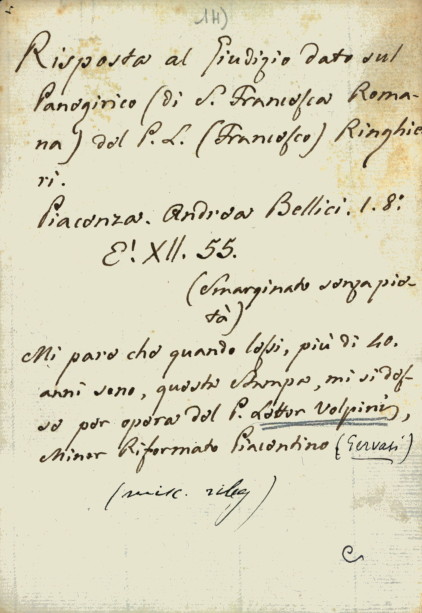 1H)
Risposta al Giudizio dato sul
Panegirico (di S. Francesca Roma-
na) del P. L. (Francesco) Ringhie-
ri.
Piacenza. Andrea Bellici. 1. 8°
E! XII. 55.
(Smarginato senza pie-
tà)
Mi pare che quando lessi, più di 40.
anni sono, questa Stampa, mi si des-
se per opera del P. Lettor Volpini,
Minor Riformato Piacentino (Gervasi)
(misc. rileg)